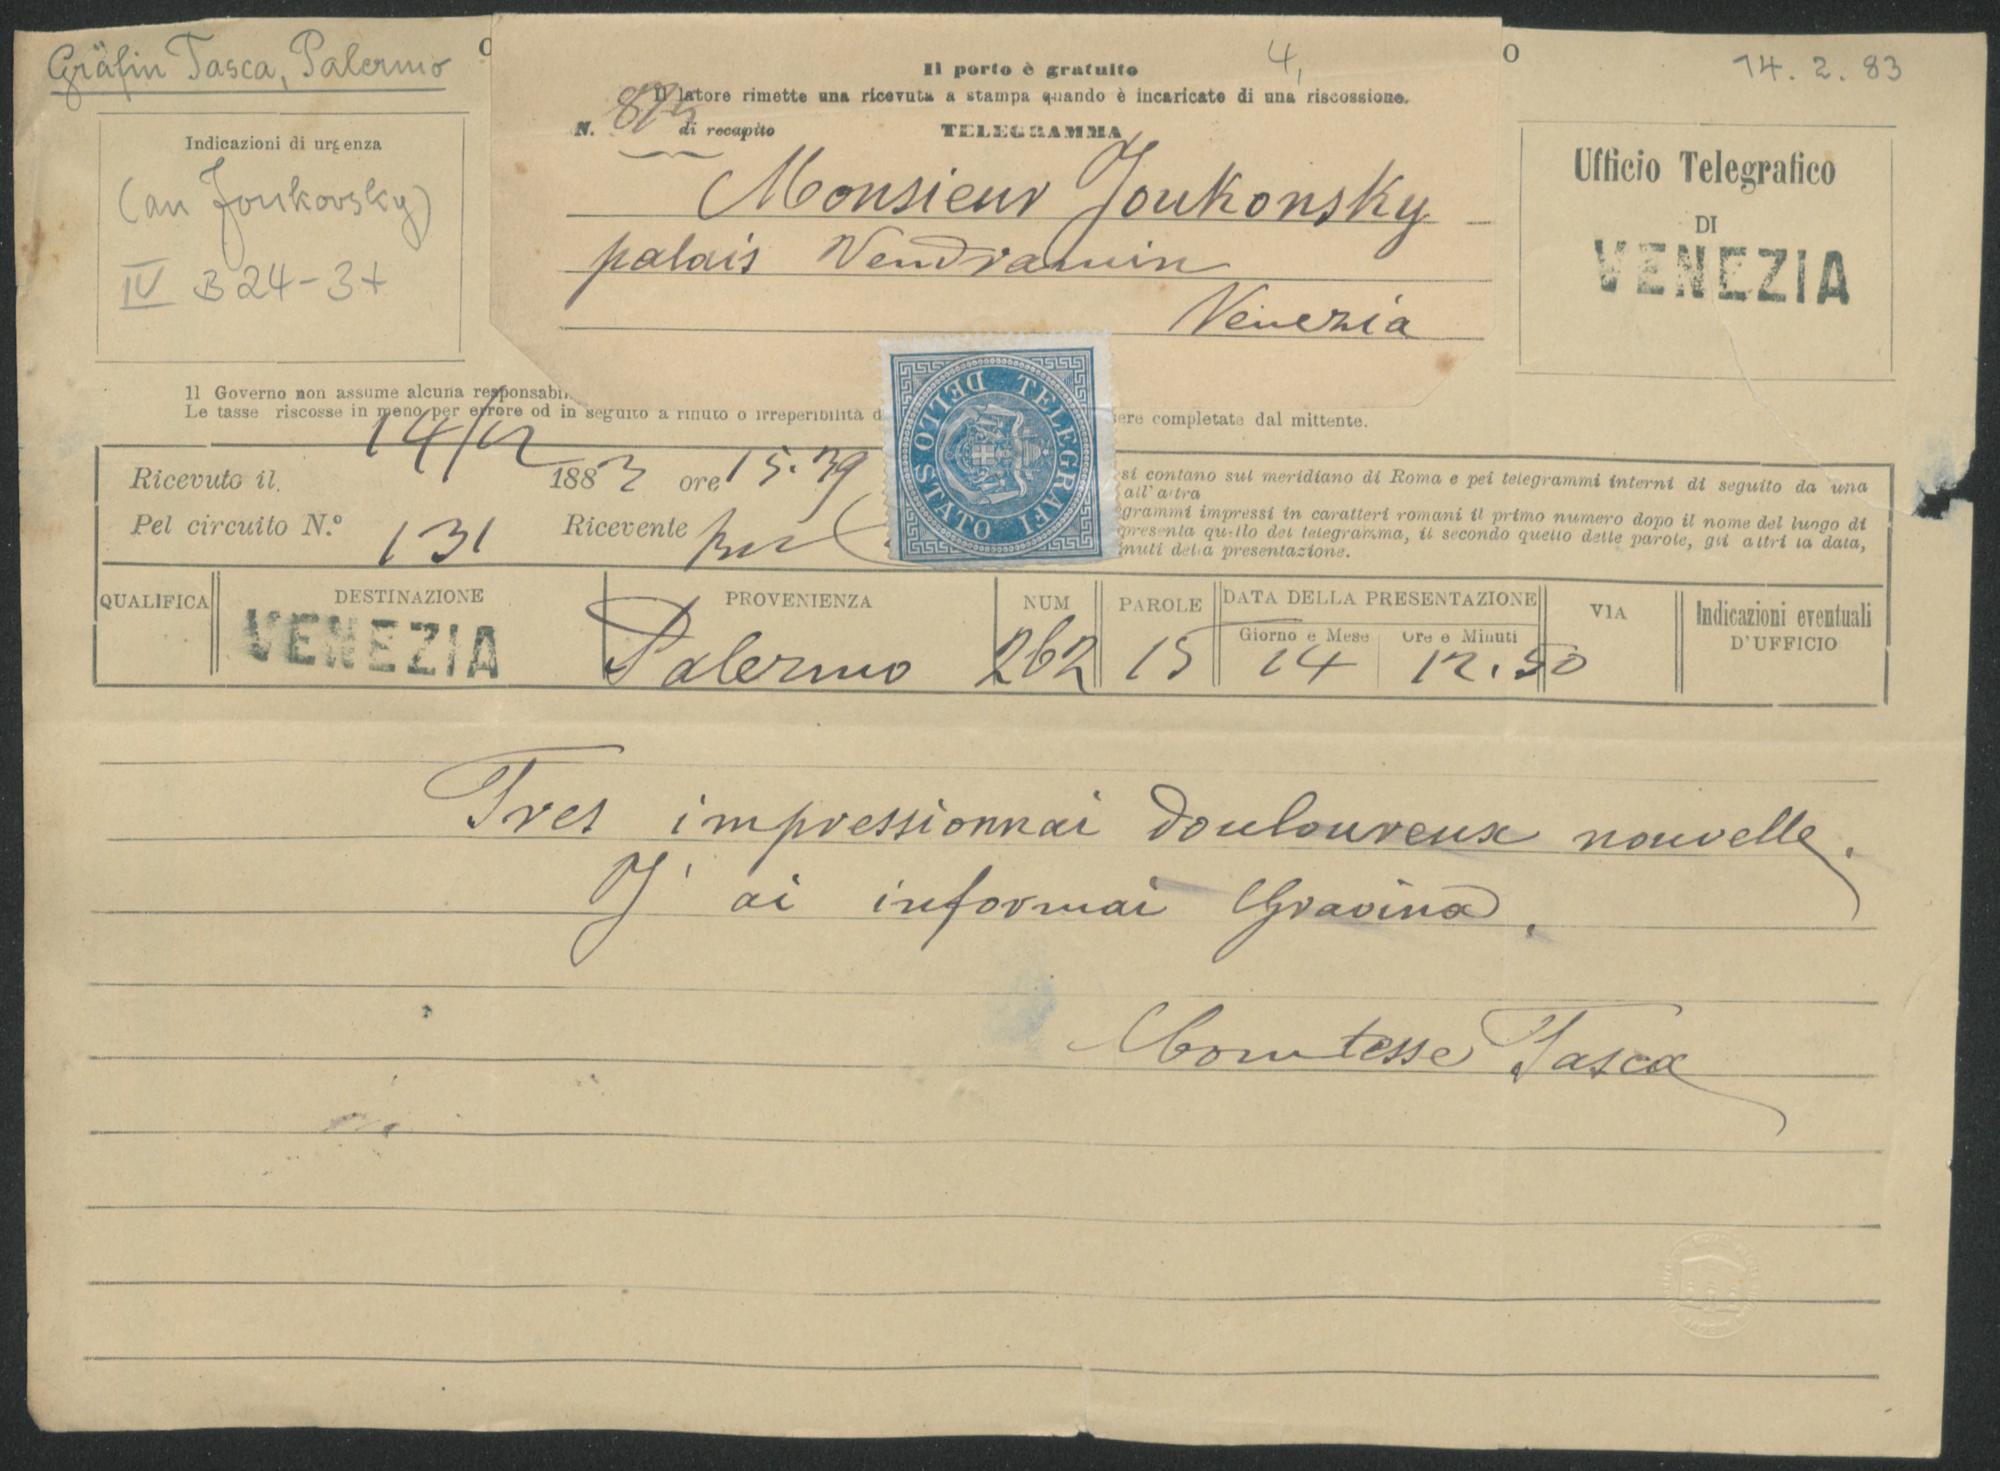 Gräfin Tasca, Palermo
14. 2. 83
Indicazioni di urgenza
(an Joukovsky)
IV B 24-3+
4,
Il porto è gratuito
Il latore rimette una ricevuta a stampa quando è incaricate di una riscossione.
N. di recapito TELEGRAMMA
Monsieur Joukonsky
palais Vendramin
Venezia
Ufficio Telegrafico
DI
VENEZIA
Il Governo non assume alcuna responsabi
Le tasse riscosse in meno per errore od in seguito a rifiuto o irreperibilità d
ere completate dal mittente.
STATO TELEGRAFI DELLO
Ricevuto il 14/2 1883 ore 15.39
Pel circuito N.º 131 Ricevente
si contano sul meridiano di Roma e pei telegrammi interni di seguito da una
all'altra
grammi impressi in caratteri romani il primo numero dopo il nome del luogo di
presenta quello del telegramma, il secondo quello delle parole, gli altri la data,
nuti della presentazione.
QUALIFICA DESTINAZIONE PROVENIENZA NUM PAROLE DATA DELLA PRESENTAZIONE VIA Indicazioni eventuali
D'UFFICIO
Giorno e Mese Ore e Minuti
VENEZIA Palermo 262 15 14 12.50
Tres impressionnai douloureux nouvelle.
J'ai informai Gravina.
Comtesse Tasca